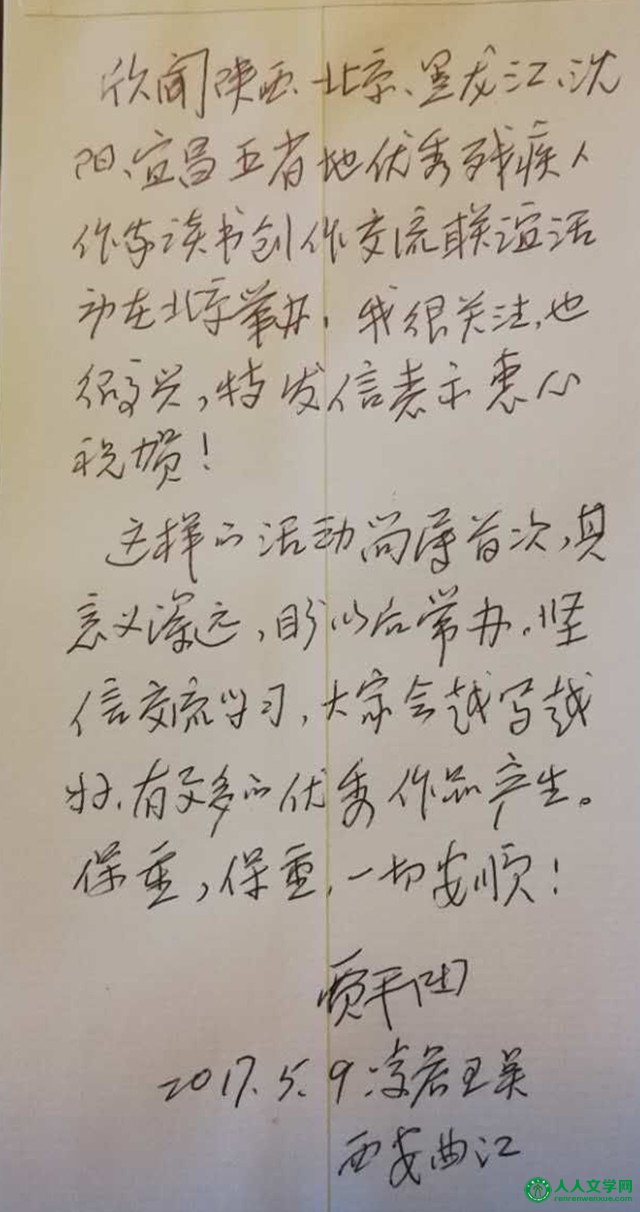 欣闻陕西、北京、黑龙江、沈
阳、宜昌五省地优秀残疾人
作家读书创作交流联谊活
动在北京举办，我很关注，也
很高兴，特发信表示衷心
祝贺！
这样的活动尚属首次，其
意义深远，盼以后常办。坚
信交流学习，大家会越写越
好，有更多的优秀作品产生。
保重，保重，一切安顺！
贾平凹
2017.5.9.凌晨
西安曲江
人人文学网
renrenwenxue.com